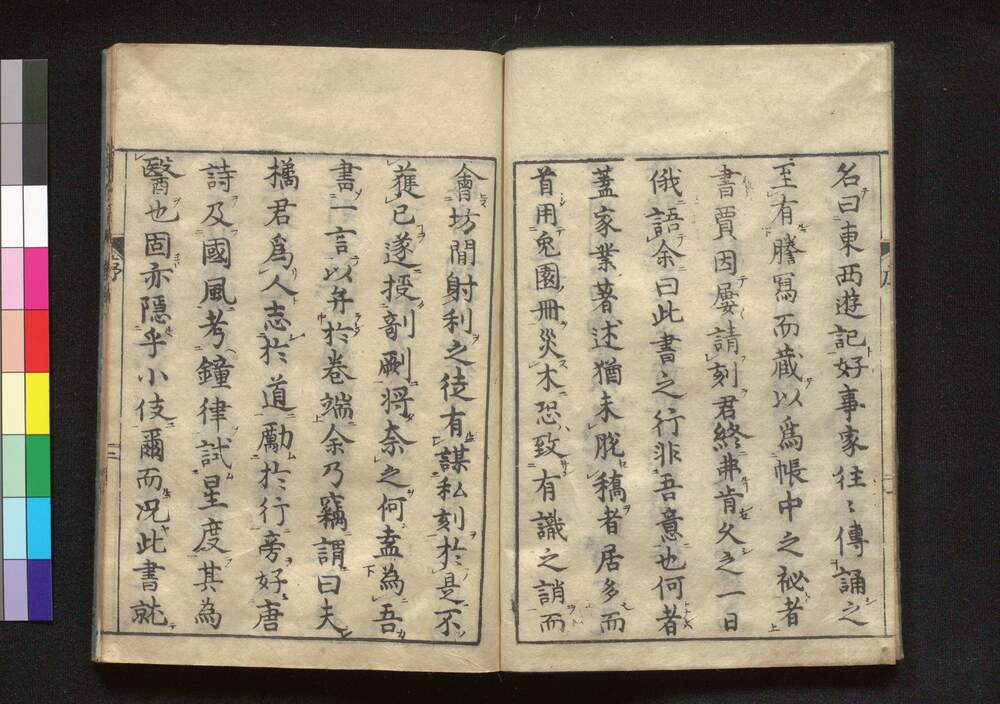 名曰東西遊記好事家往々傳誦之
至有謄寫而藏以爲帳中之祕者
書賈因屢請刻君終弗肯久之一日
俄語余曰此書之行非吾意也何者
蓋家業著述猶未脱稿者居多而
首用兎園冊災木恐致有識之誚而
會坊間射利之徒有謀私刻於是不
獲已遂授剞劂將奈之何盍為吾
書一言以弁於卷端余乃竊謂曰夫
橘君爲人志於道勵於行旁好唐
詩及國風考鐘律試星度其為
醫也固亦隱乎小伎爾而況此書就
序